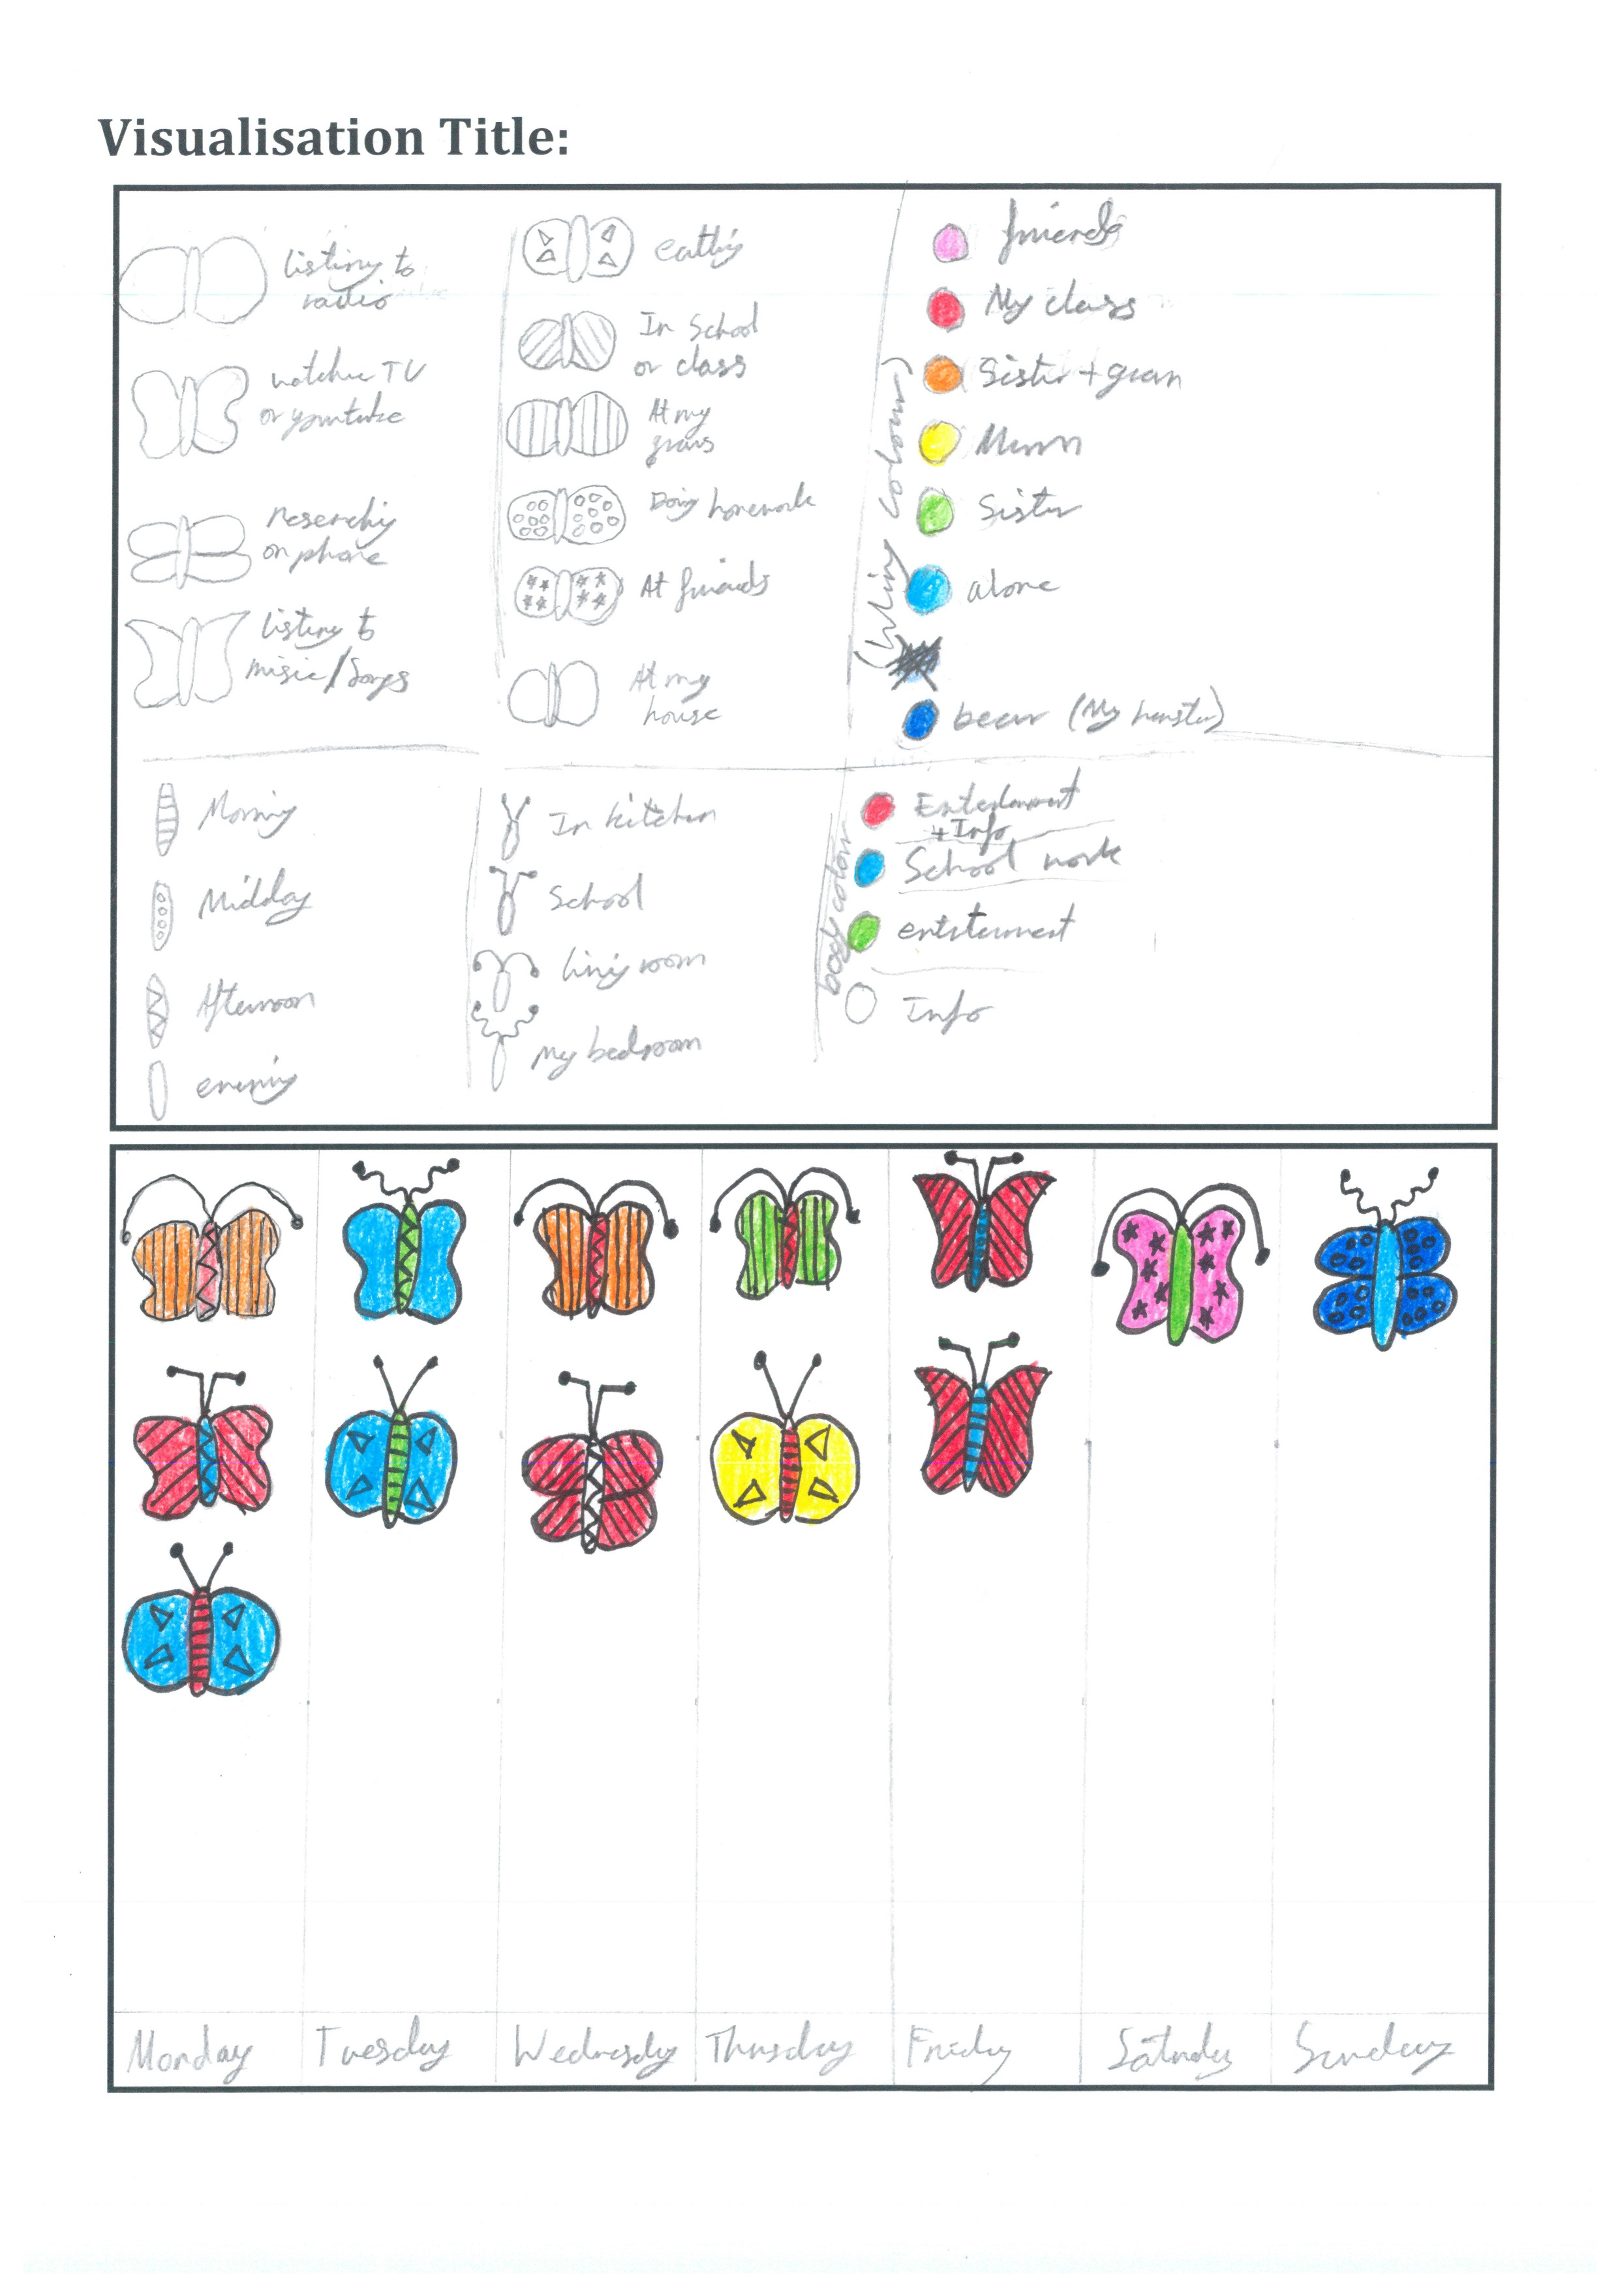 Visualisation Title:
listiny to
radio
watchie TV
or youtube
Reserchiy
on phone
listiny to
music/Songs
eattig
In School
or class
At my
grans
Doing homework
At friends
At my
house
(Wing Colour)
friends
My class
Sister + gran
Mum
Sister
alone
bear (My hamster)
Morning
Midday
Afternoon
evening
In kitchen
School
living room
My bedroom
body colour
+ Info
School work
Info
Monday
Tuesday
Wednesday
Thursday
Friday
Saturday
Sunday